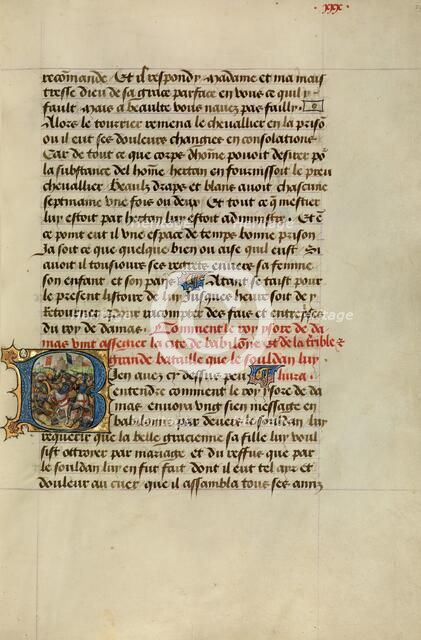 .xxx.
recõmande. Et il respondy madame et ma mais
tresse dieu de sa grace parface en vous ce quil y
fault mais a beaulte vous navez pas failly.
Allors le tourrier remena le chevallier en la prisõ
ou il eut ses douleurs changies en consolations
Car de tout ce que corps dhõme pouoit desirer põ
la substance del hõme hertan en fournissoit le preu
chevallier Beaulz draps et blans avoit chascune
septmaine une fois ou deux Et tout ce q̃ mestier
luy estoit par hertan luy estoit administre. Et ẽ
ce point eut il une espace de temps bonne prison
Ja soit ce que quelque bien ou aise quil eust Si
avoit il tousiours ses regrets envers sa femme
son enfant et son pays Atant se taist pour
le present listoire de luy Jusques heure soit de y
Retourner pour racompter des fais et entreprises
du roy de damas. Comment le roy ysore de da
mas vint assegier la cite de babilone et de la terrible et
grande bataille que le souldan luy
Bien avez cy dessus peu livra.
entendre comment le roy ysore de da
mas envoya ung sien message en
babilonne par devers le souldan luy
requerir que la belle gracienne sa fille luy voul
sist ottroyer par mariage et du reffus que par
le souldan luy en fut fait dont il eut tel ayr et
douleur au cuer que il assambla tous ses amis
heritage